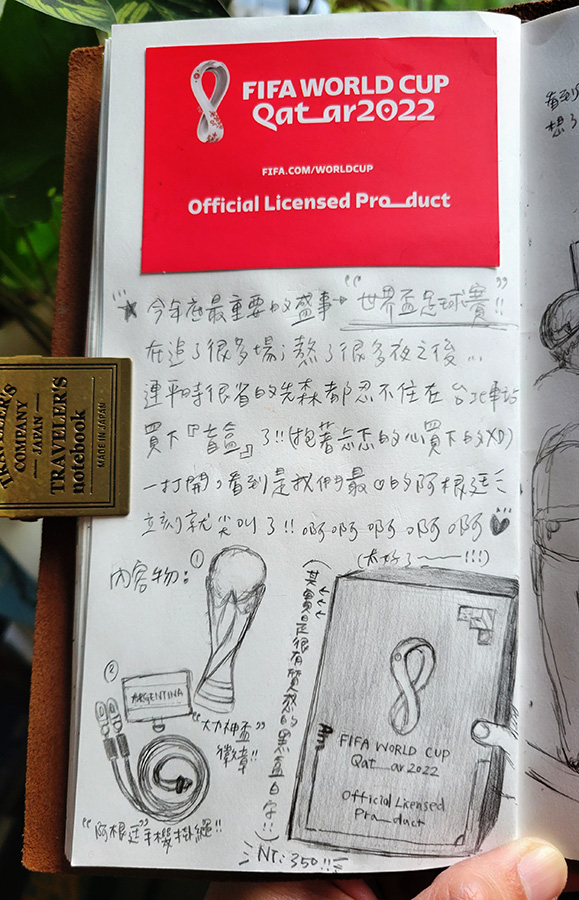 FIFA WORLD CUP
Qatar2022
FIFA.COM/WORLDCUP
Official Licensed Product
★ 今年底最重要的盛事→“世界盃足球賽”!!
在追了很多場；熬了很多夜之後...
連平時很省的先森都忍不住在台北車站
買下『盲盒』了!!(抱著忐忑的心買下的XD)
一打開，看到是我們最♡的阿根廷
立刻就尖叫了!! 啊啊啊啊啊♥
(太好了～!!!)
內容物：
①
②
ARGENTINA
“大力神盃”
徽章!!
“阿根廷”手機掛繩!!
(其實是很有質感的黑盒白字!!)
FIFA WORLD CUP
Qatar2022
Official Licensed
Product
NT:350!!
TRAVELER'S
COMPANY
JAPAN
TRAVELER'S
notebook
MADE IN JAPAN
看到
想了